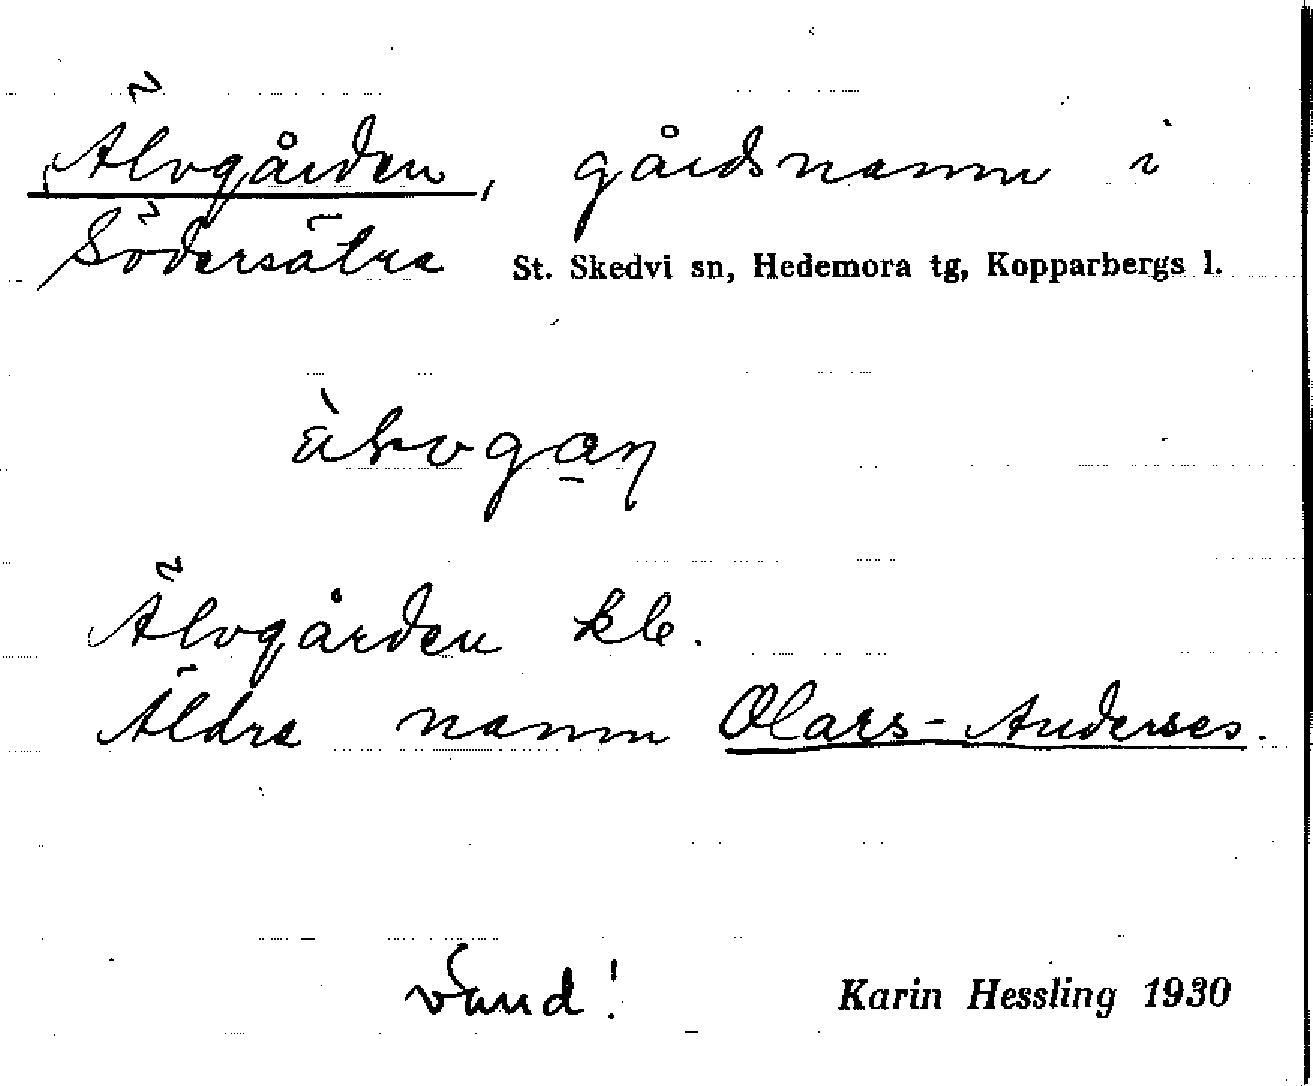 Älvgården, gårdsnamn i
Södersätra St. Skedvi sn, Hedemora tg, Kopparbergs l.
Älvgården kle.
Äldre namn Olars-Anderses.
vänd!
Karin Hessling 1930